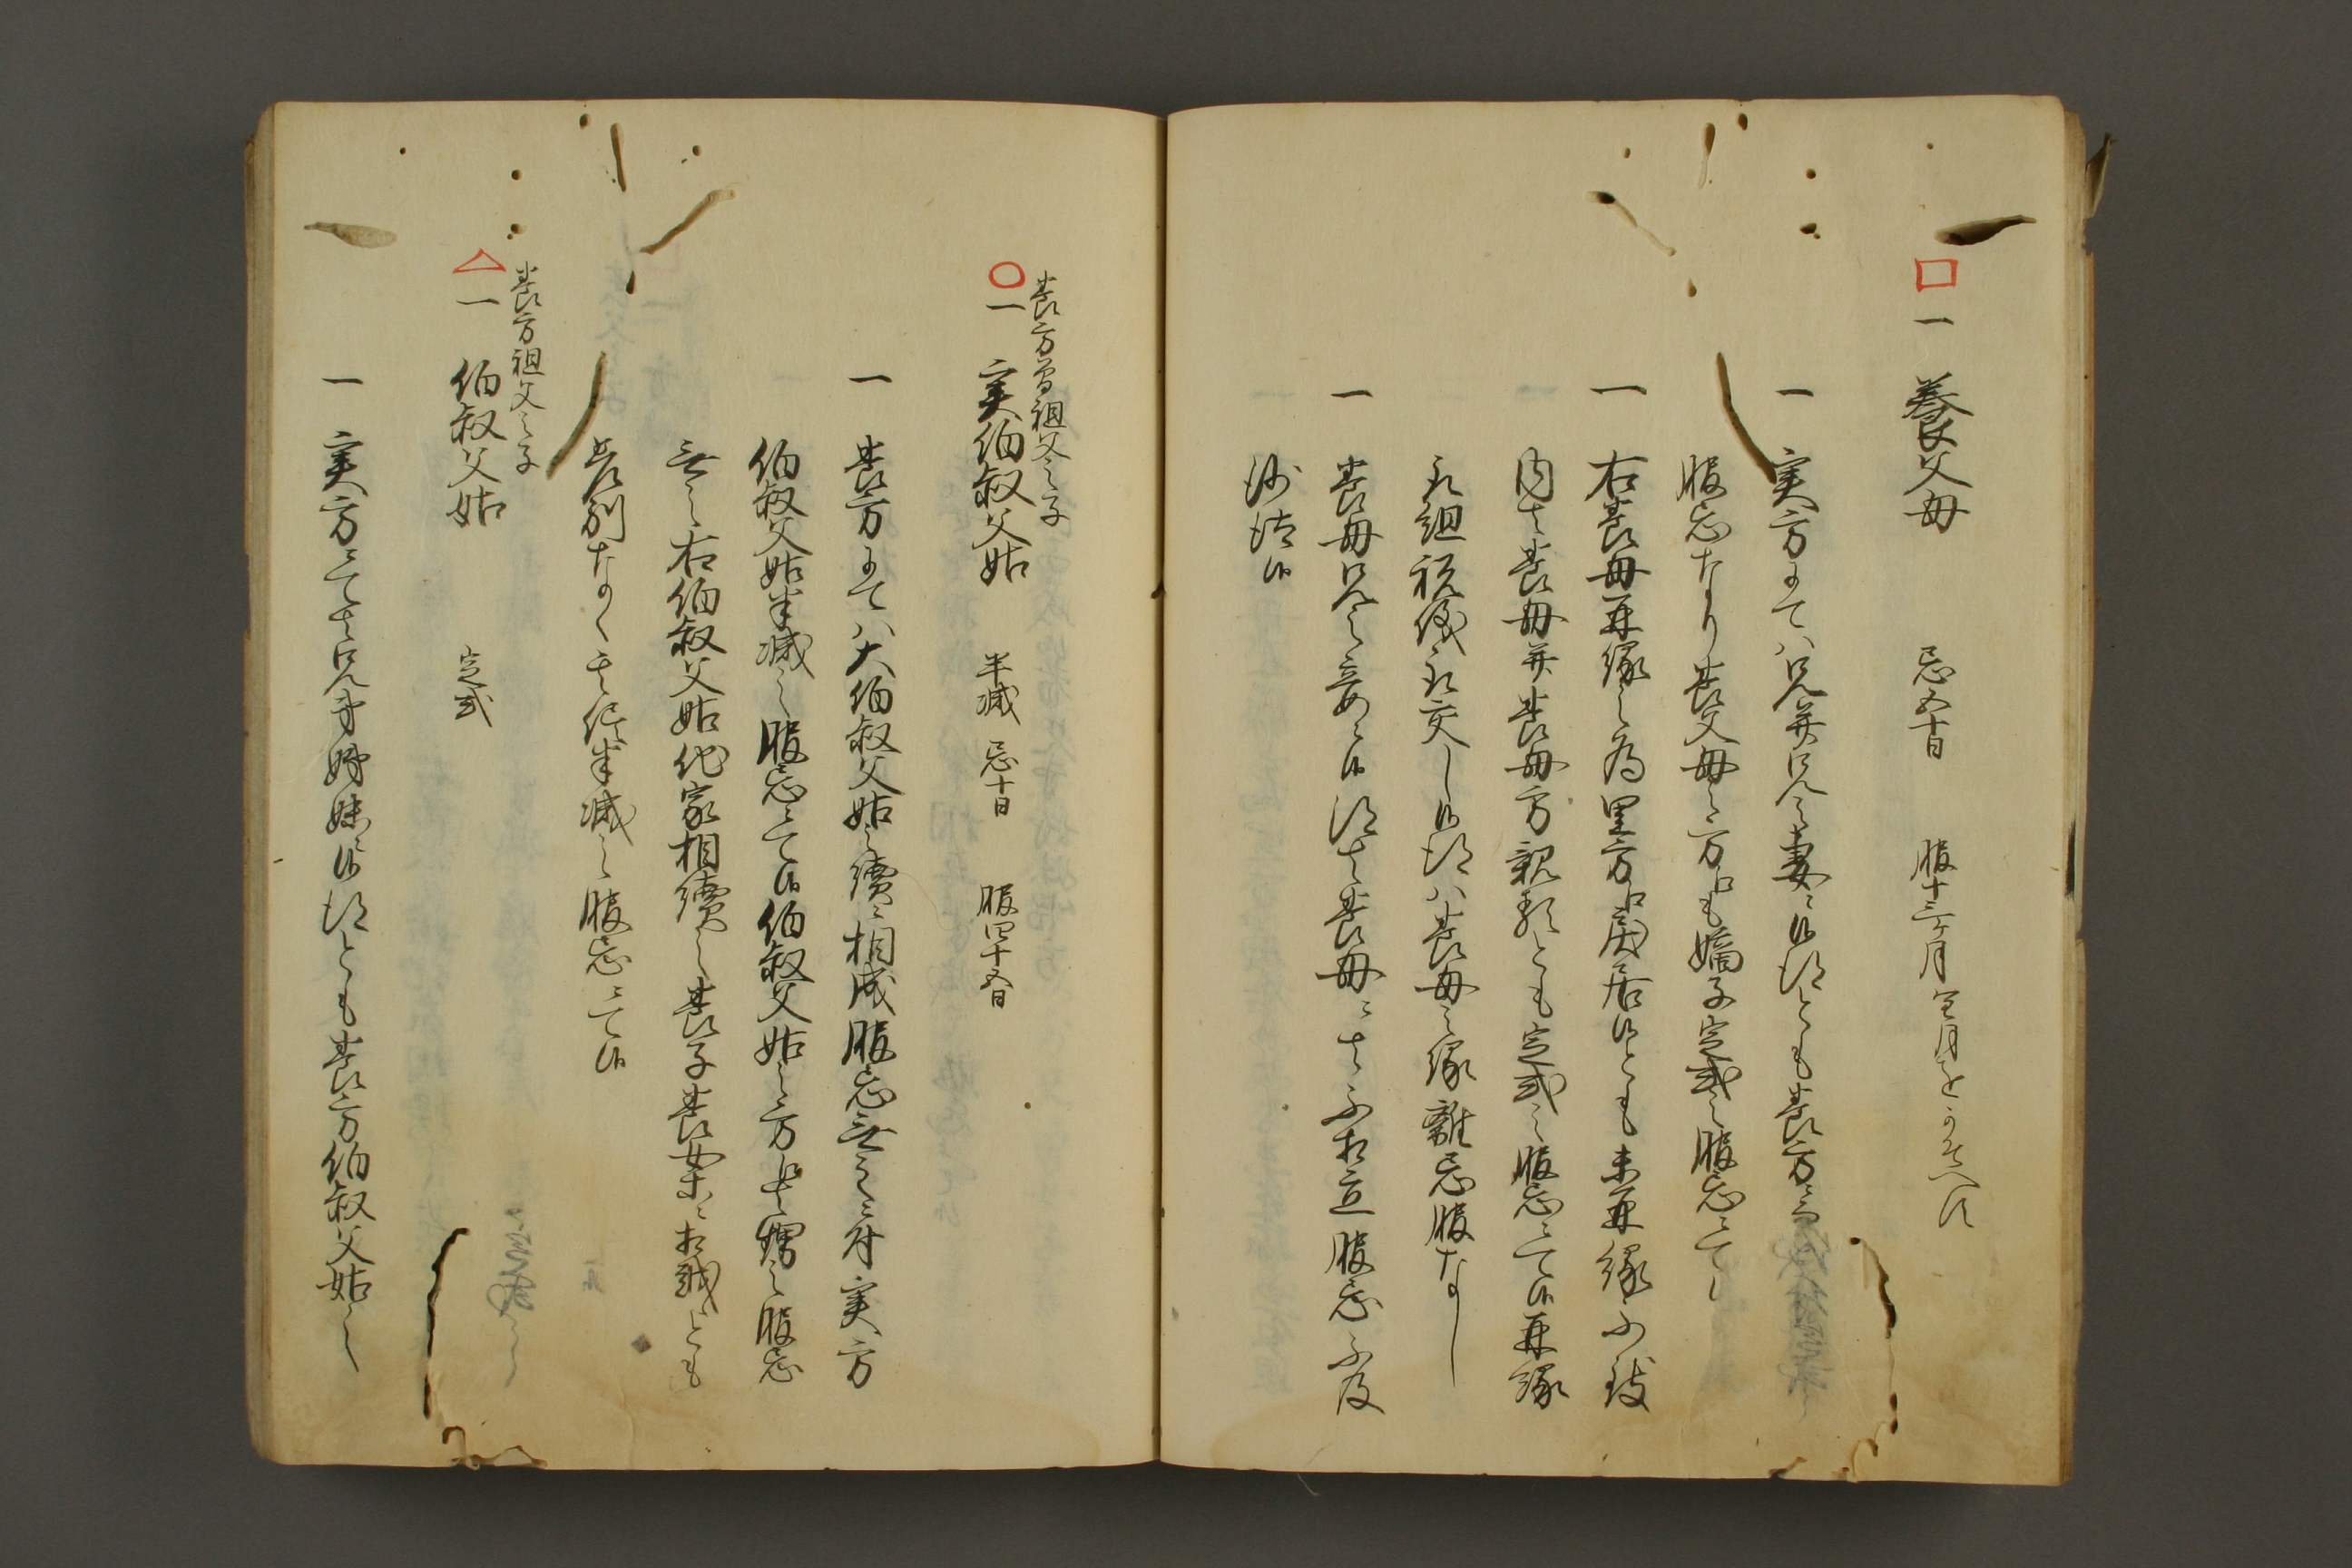 一 養父母 忌五十日 服十三ヶ月 閏月をかそへす
一 実方にてハ兄并兄之妻ニ候得とも養方ニ而
服忌なり養父母之方らも嫡子定式之服忌ニて
一 右養母再縁之為里方江戻居候とも未再縁不致
内は養母并養母方親類とも定式之服忌ニて候再縁
取組祝儀取交し候得ハ養母之縁離忌服なし
一 養母兄之妾ニ候得は養母ニは不相立服忌不及
沙汰候
養方曽祖父之子
一 実伯叔父姑 半減 忌十日 服四十五日
一 養方にてハ大伯叔父姑之続ニ相成服忌無之ニ付実方
伯叔父姑半減之服忌ニて候伯叔父姑之方らは甥之服忌
無之右伯叔父姑他家相続之養子養女等ニ相越とも
差別なく其侭半減之服忌ニて候
養方祖父之子
一 伯叔父姑 定式
一 実方ニては兄弟姉妹ニ候得とも養方伯叔父姑之